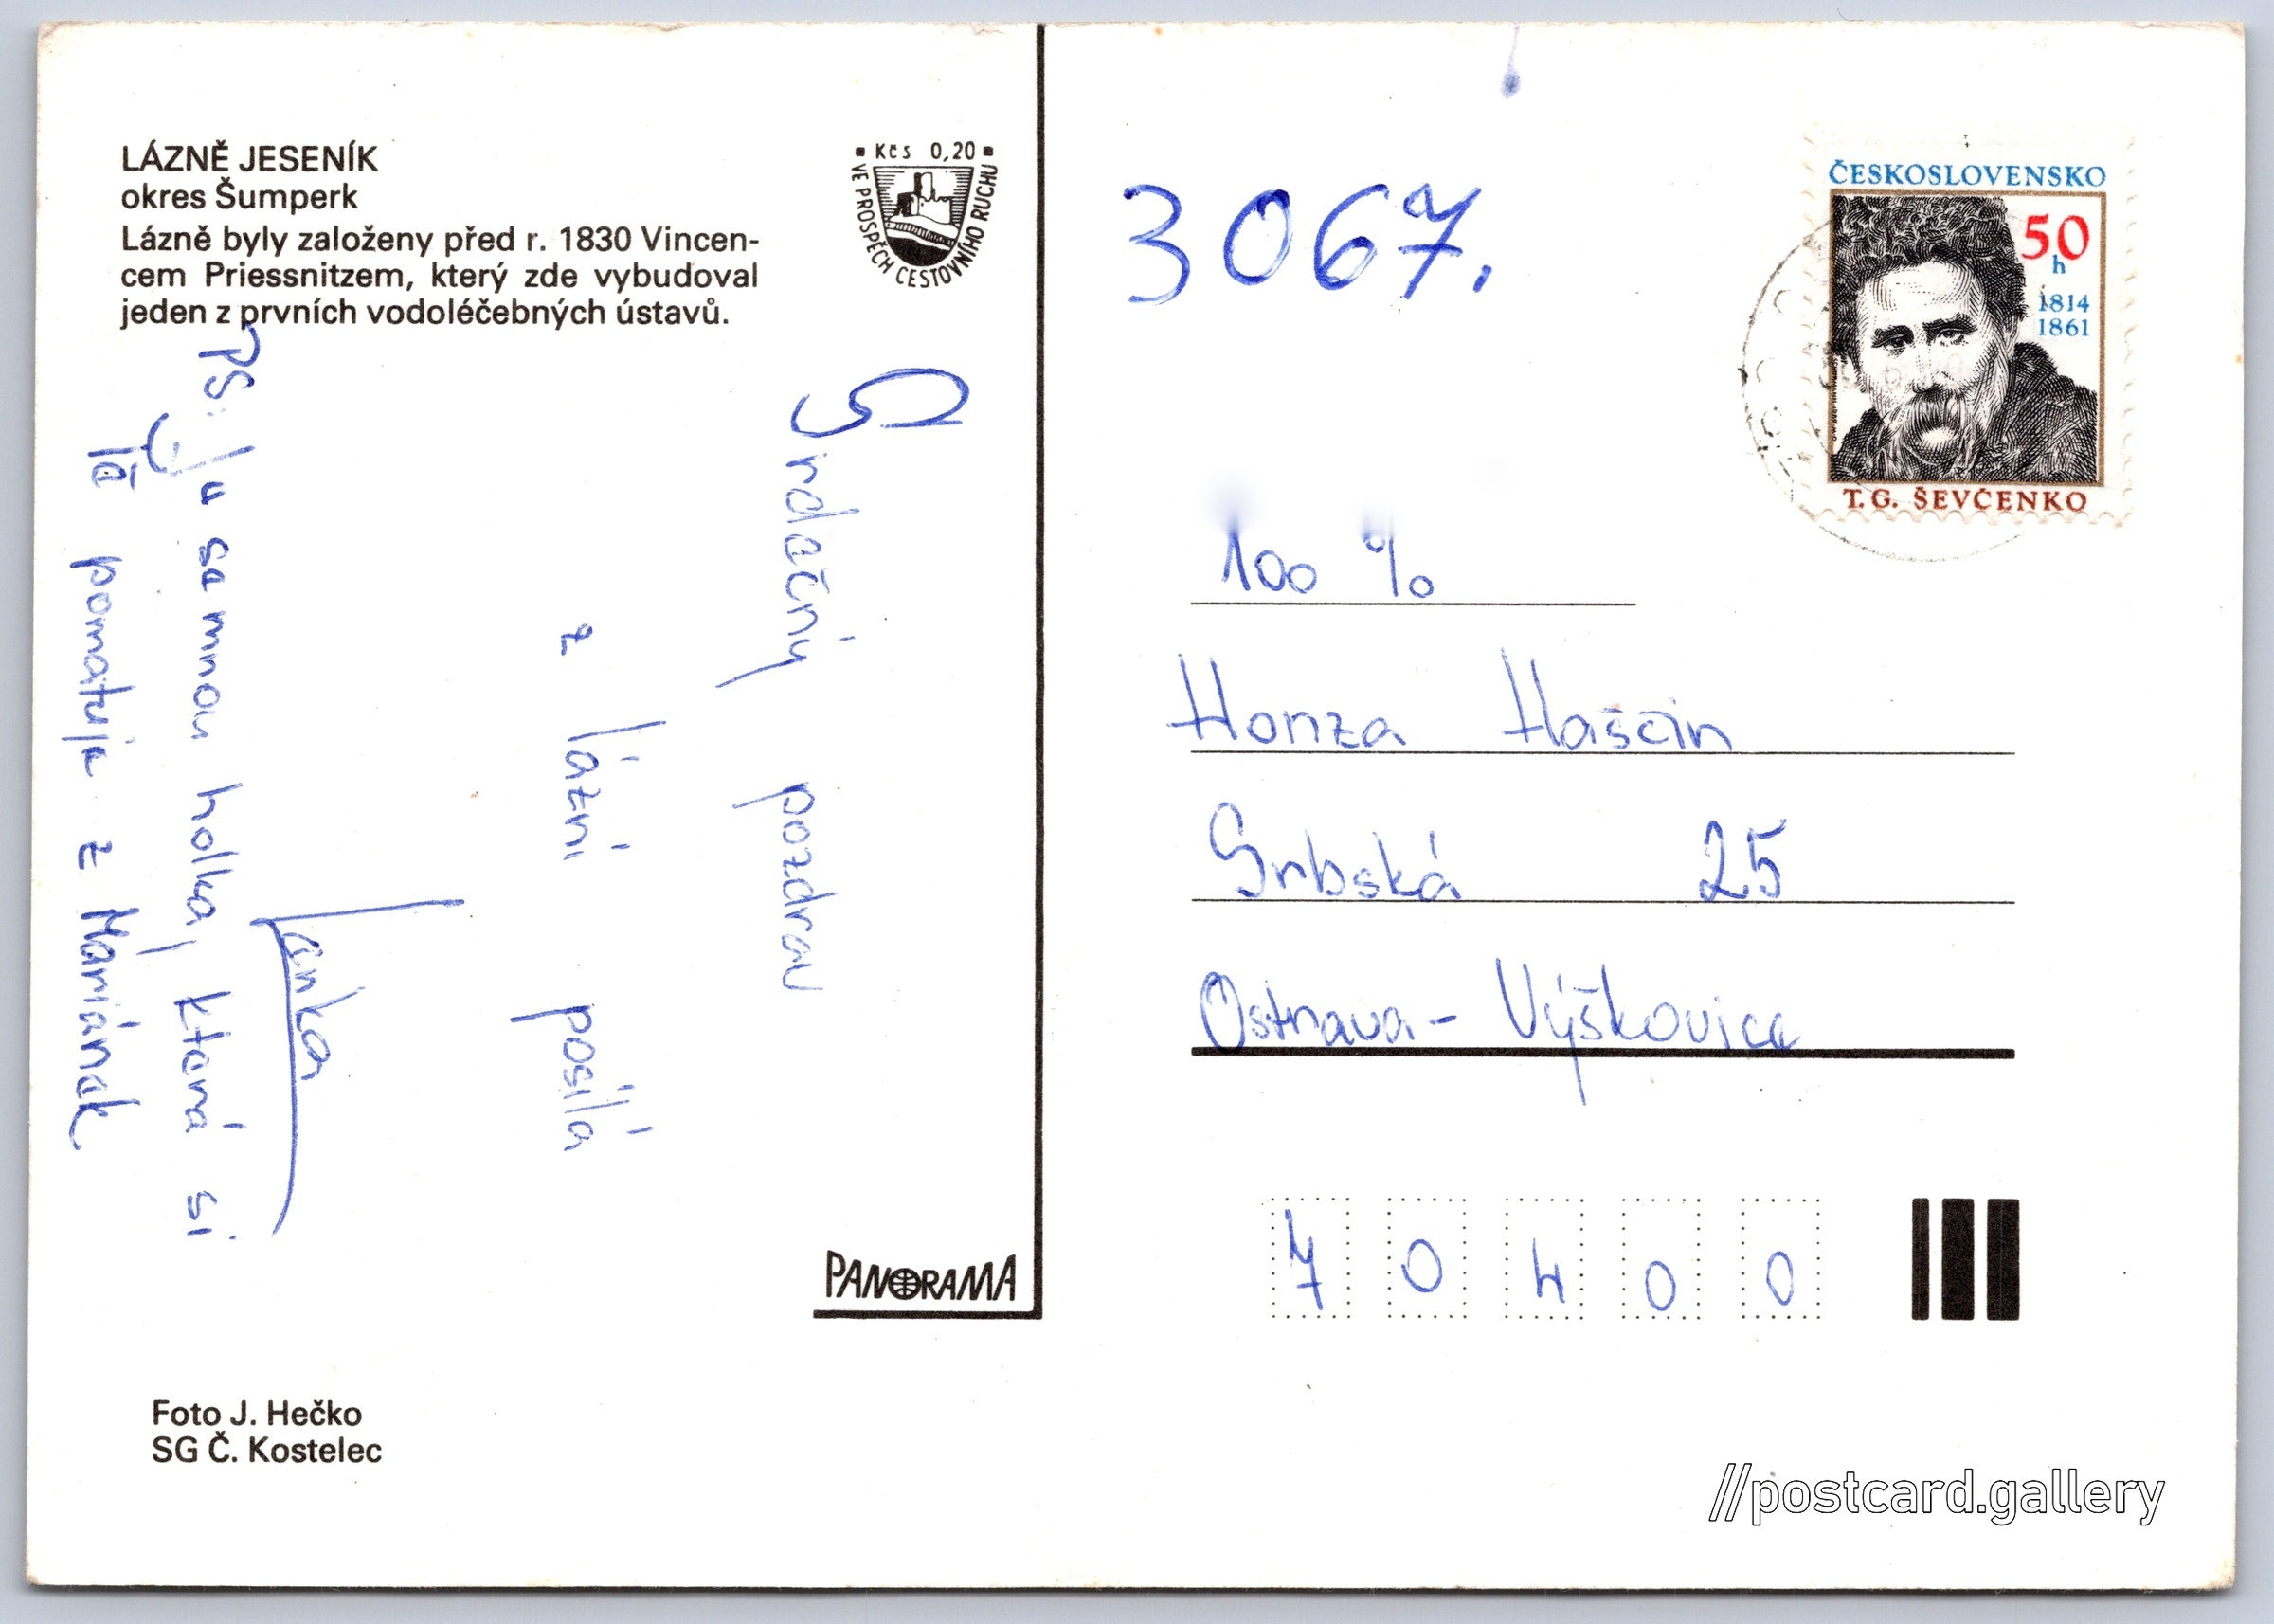 LÁZNĚ JESENÍK
okres Šumperk
Lázně byly založeny před r. 1830 Vincen-
cem Priessnitzem, který zde vybudoval
jeden z prvních vodoléčebných ústavů.
Kčs 0,20
VE PROSPĚCH CESTOVNÍHO RUCHU
Srdačný pozdrav
z lázní posílá
Janka
PS: Ju sa mnou holka, která si
Tě pomatuja z Mariánek
PANORAMA
Foto J. Hečko
SG Č. Kostelec
3067.
ČESKOSLOVENSKO
50
h
1814
1861
T.G. ŠEVČENKO
100 %
Honza Haščin
Srbská 25
Ostrava - Výškovica
70400
//postcard.gallery